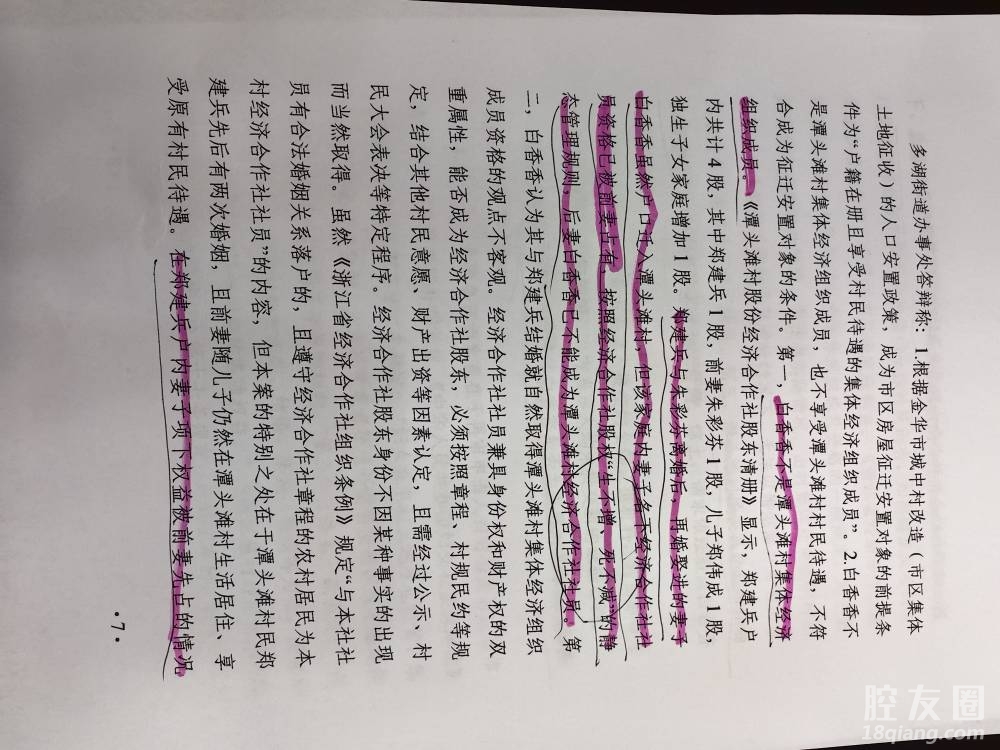 多湖街道办事处答辩称：1.根据金华市城中村改造（市区集体
土地征收）的人口安置政策，成为市区房屋征迁安置对象的前提条
件为“户籍在册且享受村民待遇的集体经济组织成员”。2.白香香不
是潭头滩村集体经济组织成员，也不享受潭头滩村村民待遇，不符
合成为征迁安置对象的条件。第一，白香香不是潭头滩村集体经济
组织成员。《潭头滩村股份经济合作社股东清册》显示，郑建兵户
内共计4股，其中郑建兵1股，前妻朱彩芬1股，儿子郑伟成1股，
独生子女家庭增加1股。郑建兵与朱彩芬离婚后，再婚娶进的妻子
白香香虽然户口迁入潭头滩村，但该家庭内妻子名下经济合作社社
员资格已被前妻占有，按照经济合作社股权“生不增、死不减”的静
态管理规则，后妻白香香已不能成为潭头滩村经济合作社社员。第
二，白香香认为其与郑建兵结婚就自然取得潭头滩村集体经济组织
成员资格的观点不客观。经济合作社社员兼具身份权和财产权的双
重属性，能否成为经济合作社股东，必须按照章程、村规民约等规
定，结合其他村民意愿、财产出资等因素认定，且需经过公示、村
民大会表决等特定程序。经济合作社股东身份不因某种事实的出现
而当然取得。虽然《浙江省经济合作社组织条例》规定“与本社社
员有合法婚姻关系落户的，且遵守经济合作社章程的农村居民为本
村经济合作社社员”的内容，但本案的特别之处在于潭头滩村民郑
建兵先后有两次婚姻，且前妻随儿子仍然在潭头滩村生活居住、享
受原有村民待遇。在郑建兵户内妻子项下权益被前妻先占的情况
·7·
腔友圈
18qiang.com